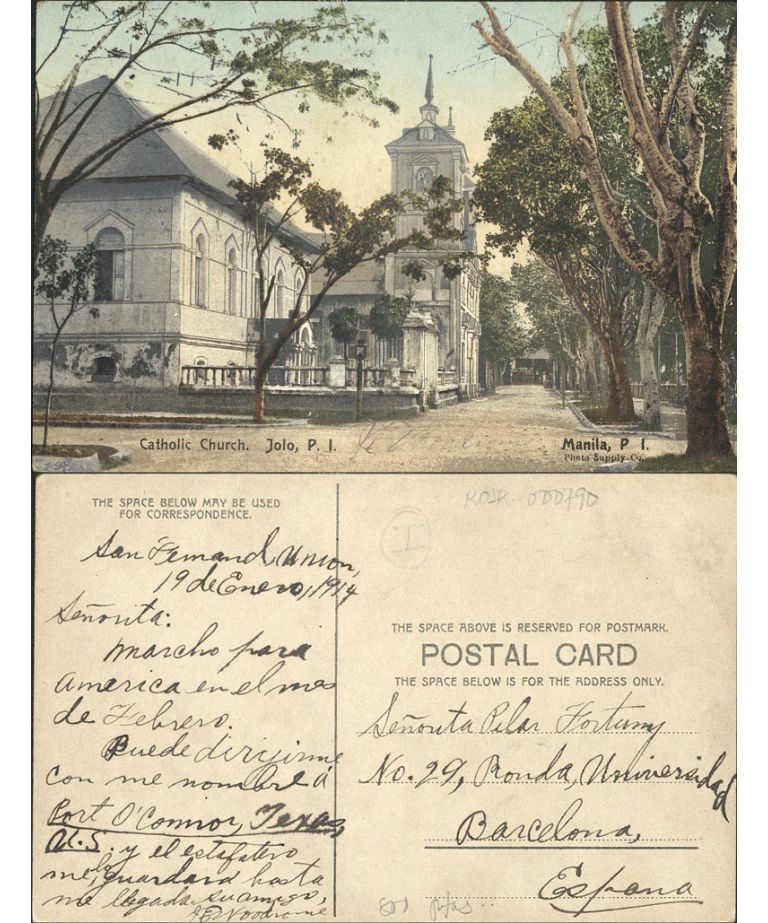 Catholic Church. Jolo, P. I.
Manila, P. I.
Photo Supply Co.
THE SPACE BELOW MAY BE USED
FOR CORRESPONDENCE.
San Fernand, Union,
19 de Enero, 1914
Señorita:
Marcho para
America en el mes
de Febrero.
Puede dirijirme
con me nombre á
Port O'Connor, Texas,
U.S. y el estafetero
me lo guardará hasta
me llegada su amigo,
THE SPACE ABOVE IS RESERVED FOR POSTMARK.
POSTAL CARD
THE SPACE BELOW IS FOR THE ADDRESS ONLY.
Señorita Pilar Fortuny
No. 29, Ronda, Universidad
Barcelona,
España